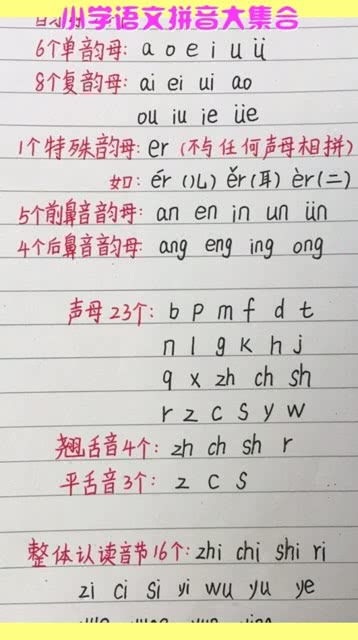 小学语文拼音大集合
6个单韵母: a o e i u ü
8个复韵母: ai ei ui ao
ou iu ie üe
1个特殊韵母: er (不与任何声母相拼)
如: ér(儿) ěr(耳) èr(二)
5个前鼻音韵母: an en in un ün
4个后鼻音韵母: ang eng ing ong
声母23个: b p m f d t
n l g k h j
q x zh ch sh
r z c s y w
翘舌音4个: zh ch sh r
平舌音3个: z c s
整体认读音节16个: zhi chi shi ri
zi ci si yi wu yu ye